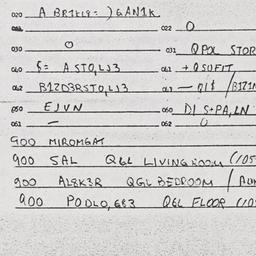 020 A BRIKLQ= )GANIK
022 0
030 0
031 QPOL STOR
040 $= A.STO,LJ3
041 +QSOFIT
042 B1ZD3RSTO,LJ3
050 EJVN
060 DIS+PA,LN
061 -
062 0
900 MIROMGAT
900 SAL QGL LIVINGROOM (105
900 AL8K3R QGL BEDROOM /
900 PODLO,G83 QGL FLOOR (105